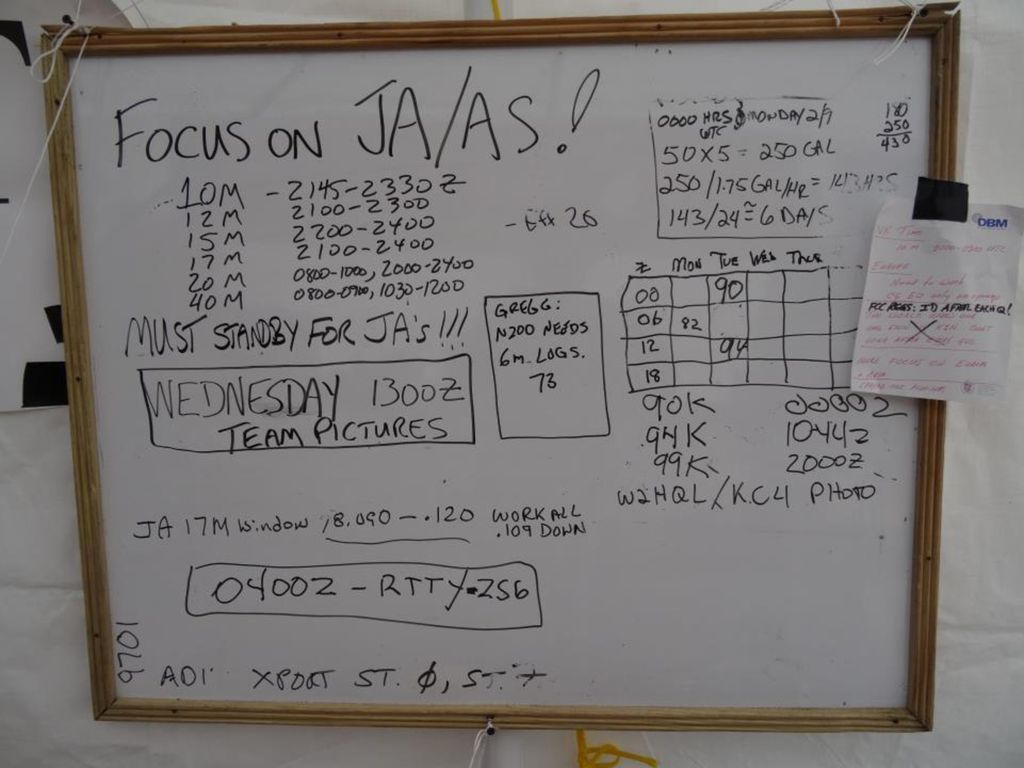 FOCUS ON JA/AS!
10M - 2145-2330Z
12M 2100-2300
15M 2200-2400
17M 2100-2400
20M 0800-1000, 2000-2400
40M 0800-0900, 1030-1200
MUST STANDBY FOR JA's!!!
WEDNESDAY 1300Z
TEAM PICTURES
GREGG:
N200 NEEDS
6m LOGS.
73
0000 HRS MONDAY 2/9
UTC
50X5 = 250 GAL
250/1.75 GAL/HR = 143 HRS
143/24 ≅ 6 DAYS
180
250
430
Z MON TUE WED THUR
00 90
06 82
12 94
18
90K 0000Z
94K 1044Z
99K 2000Z
W2HQL/KC4 PHOTO
JA 17M WINDOW 18.090-.120 WORK ALL
.109 DOWN
0400Z - RTTY-ZS6
9701
ADI XPORT ST. Ø, ST. 7
DBM
Europe
FCC RULES: ID AFTER EACH Q!